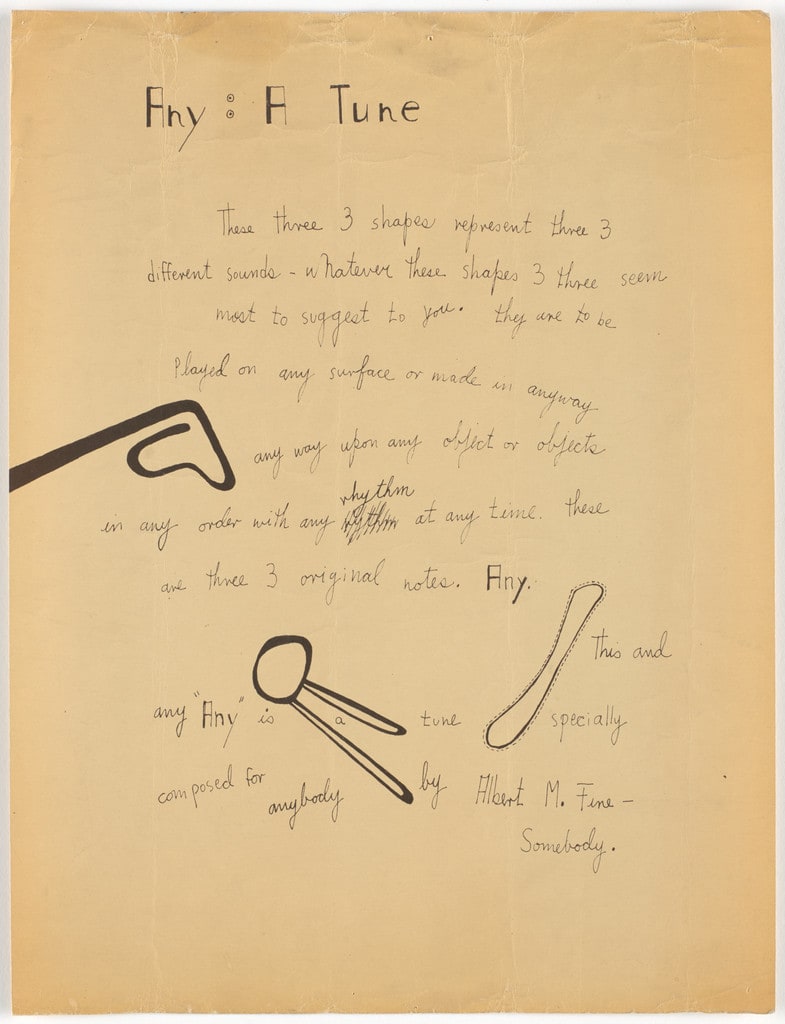 Any : A Tune
These three 3 shapes represent three 3
different sounds - whatever these shapes 3 three seem
most to suggest to you. they are to be
Played on any surface or made in anyway
any way upon any object or objects
rhythm
in any order with any rythm at any time. these
are three 3 original notes. Any.
This and
any "Any" is a tune specially
composed for anybody by Albert M. Fine —
Somebody.